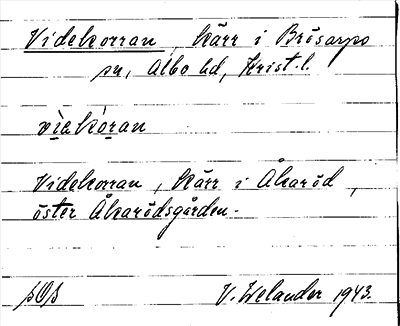 Videkorran, kärr i Brösarps
sn, Albo hd, Krist.l.
vìẹkọ́ran
Videkorran, kärr i Åkaröd,
öster Åkarödsgården.
V. Welander 1943.